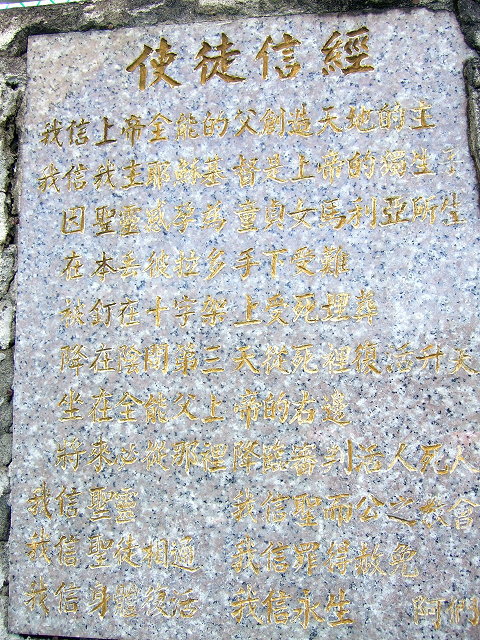 使徒信經
我信上帝全能的父創造天地的主
我信我主耶穌基督是上帝的獨生子
因聖靈感孕為童貞女馬利亞所生
在本丟彼拉多手下受難
被釘在十字架上受死埋葬
降在陰間第三天從死裡復活升天
坐在全能父上帝的右邊
將來必從那裡降臨審判活人死人
我信聖靈　我信聖而公之教會
我信聖徒相通　我信罪得赦免
我信身體復活　我信永生　阿們